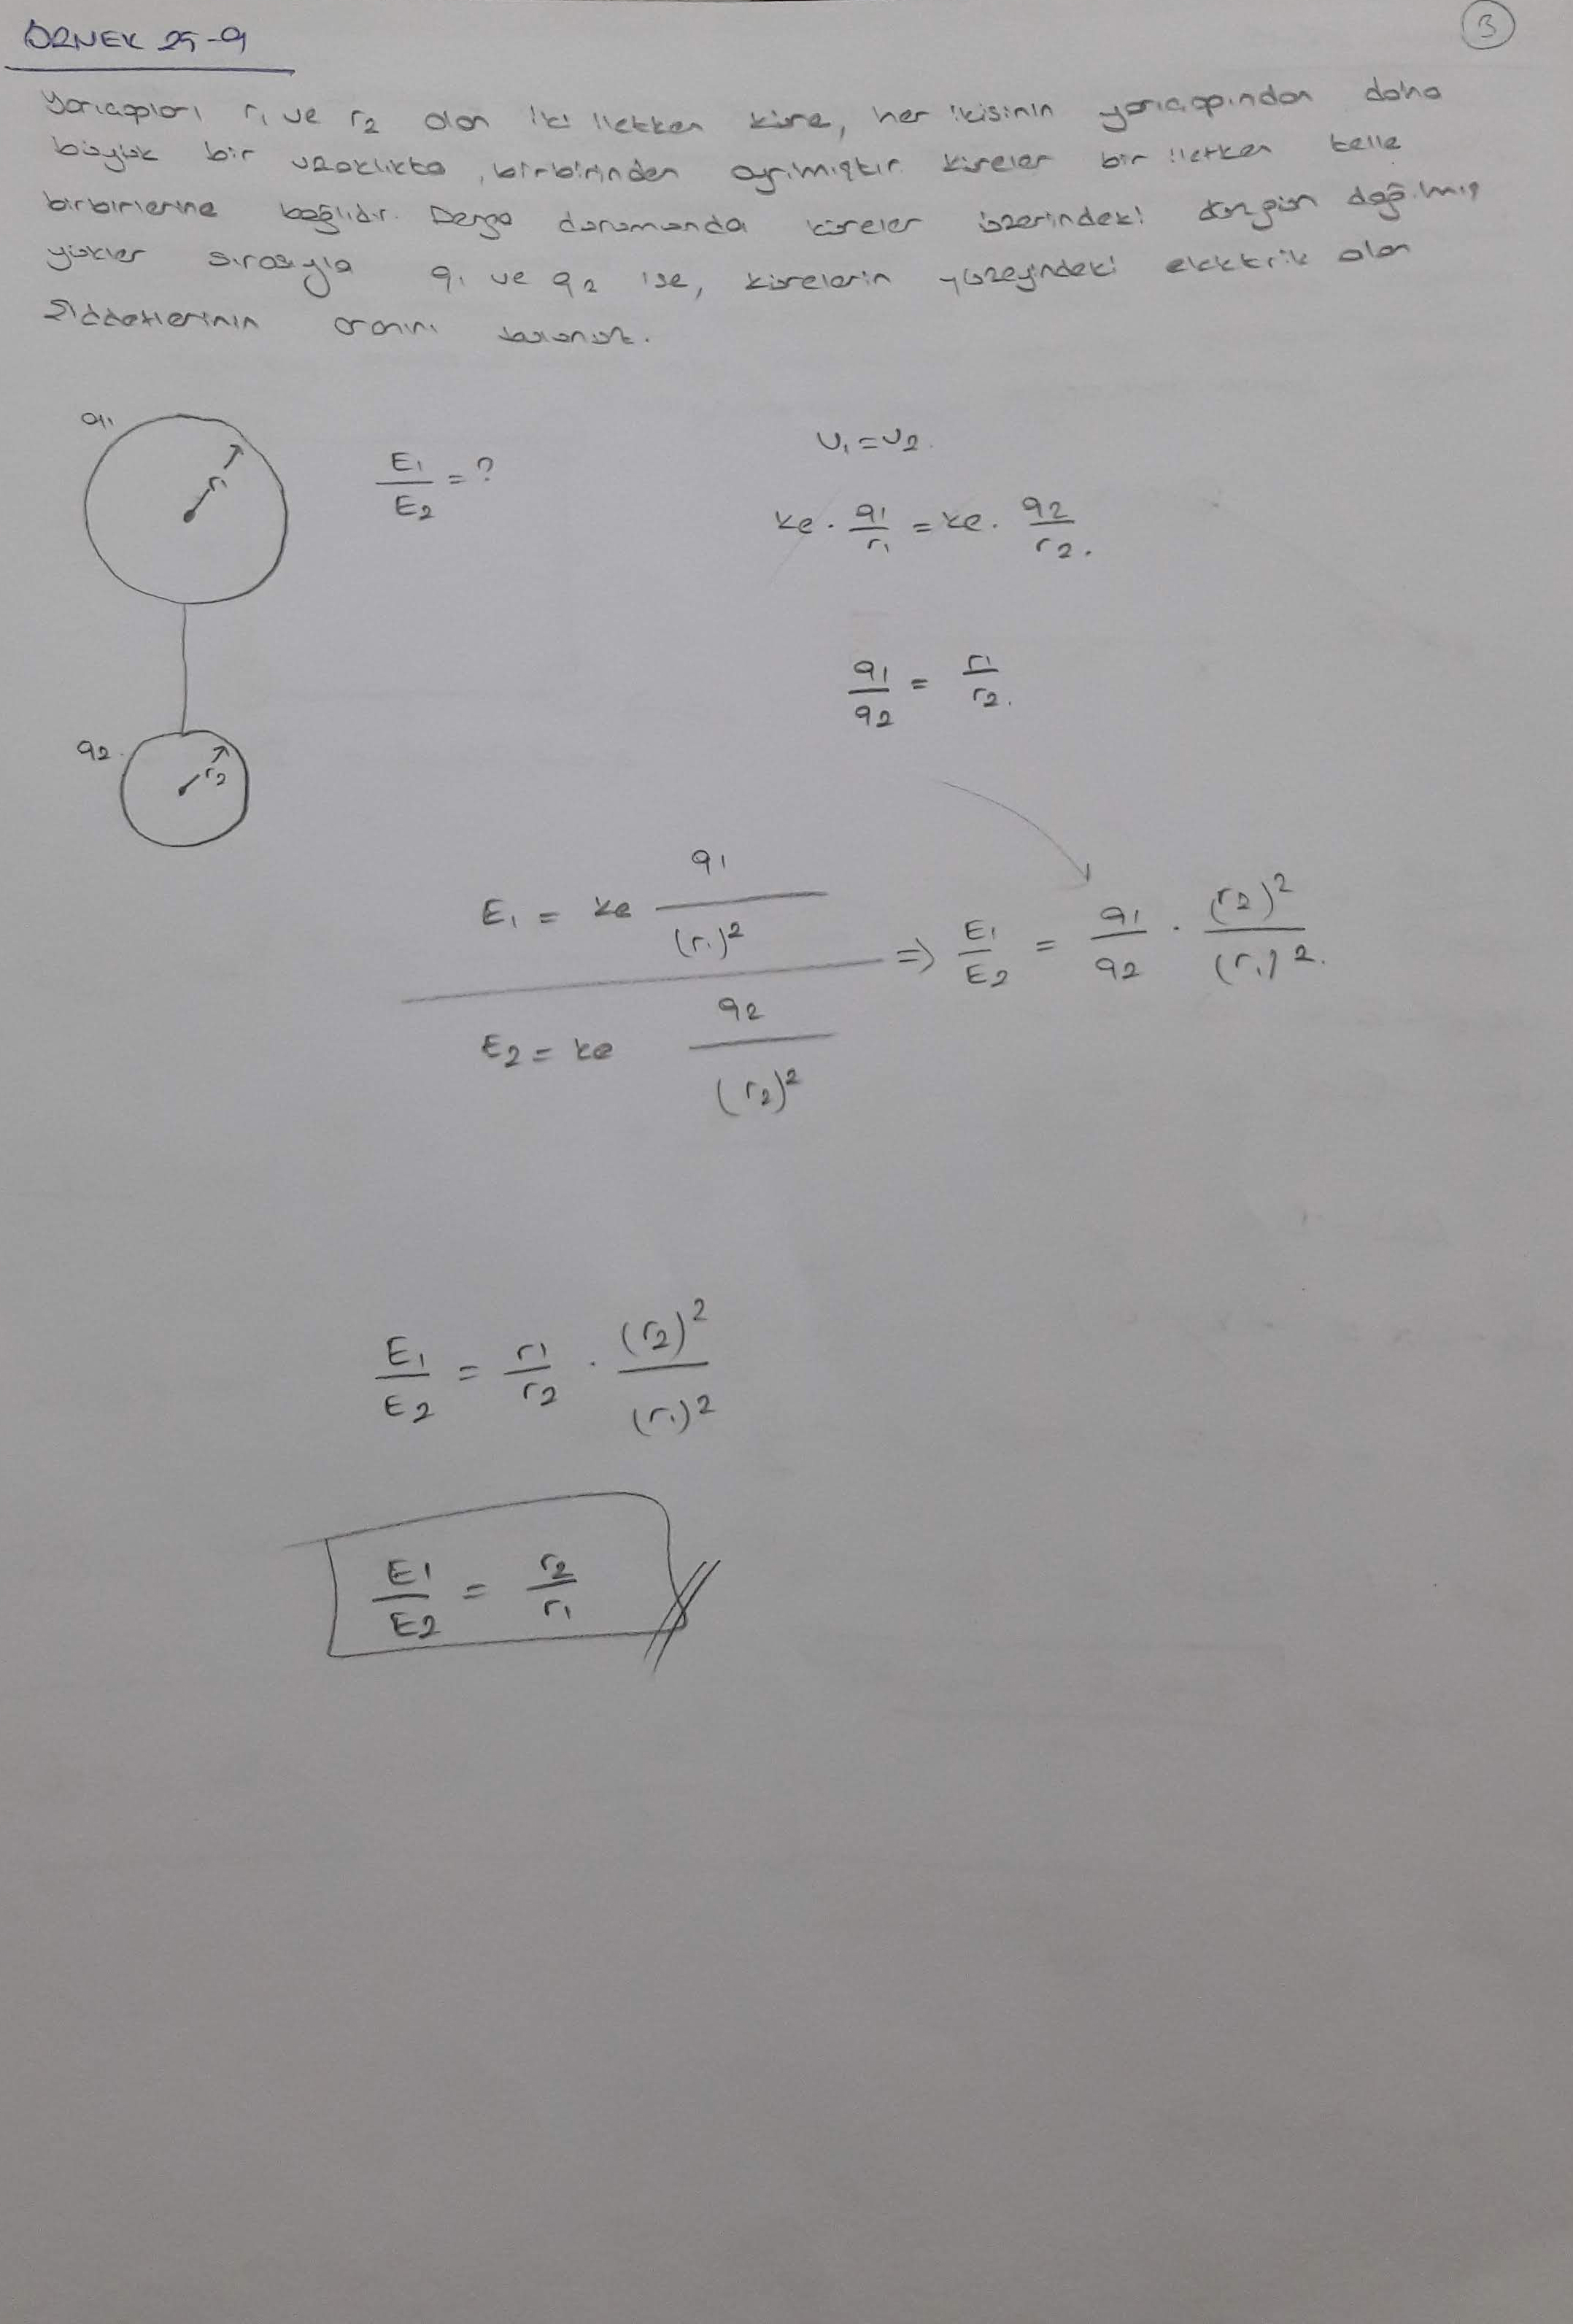 ÖRNEK 25-9
3
Yarıçapları r1 ve r2 olan iki iletken küre, her ikisinin yarıçapından daha
büyük bir uzaklıkta, birbirinden ayrılmıştır. Küreler bir iletken telle
birbirlerine bağlıdır. Denge durumunda küreler üzerindeki düzgün dağılmış
yükler sırasıyla q1 ve q2 ise, kürelerin yüzeyindeki elektrik alan
şiddetlerinin oranını bulunuz.
q1
r1
E1/E2 = ?
U1 = U2.
ke . q1/r1 = ke . q2/r2.
q1/q2 = r1/r2.
q2
r2
E1 = ke q1/(r1)²
E2 = ke q2/(r2)²
=> E1/E2 = q1/q2 . (r2)²/(r1)².
E1/E2 = r1/r2 . (r2)²/(r1)²
E1/E2 = r2/r1